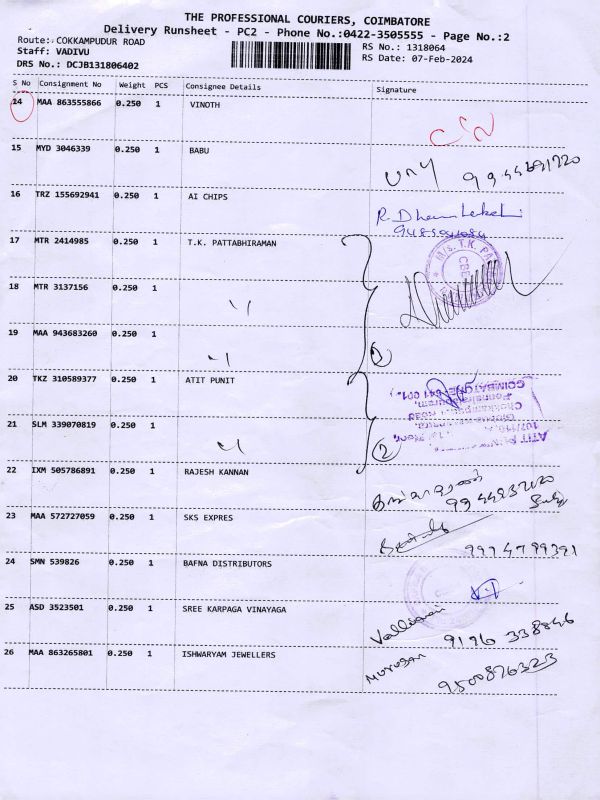 THE PROFESSIONAL COURIERS, COIMBATORE
Delivery Runsheet - PC2 - Phone No.:0422-3505555 - Page No.:2
Route: COKKAMPUDUR ROAD
RS No.: 1318064
Staff: VADIVU
RS Date: 07-Feb-2024
DRS No.: DCJB131806402
S No Consignment No Weight PCS Consignee Details Signature
14 MAA 863555866 0.250 1 VINOTH
15 MYD 3046339 0.250 1 BABU
பாபு
16 TRZ 155692941 0.250 1 AI CHIPS
17 MTR 2414985 0.250 1 T.K. PATTABHIRAMAN
M/s. T.K. PA
18 MTR 3137156 0.250 1 "
19 MAA 943683260 0.250 1 "
1
20 TKZ 310589377 0.250 1 ATIT PUNIT
21 SLM 339070819 0.250 1 "
2
COIMBATORE-641 001.
22 IXM 505786891 0.250 1 RAJESH KANNAN
23 MAA 572727059 0.250 1 SKS EXPRES
24 SMN 539826 0.250 1 BAFNA DISTRIBUTORS
25 ASD 3523501 0.250 1 SREE KARPAGA VINAYAGA
9196 338846
26 MAA 863265801 0.250 1 ISHWARYAM JEWELLERS
Murugan 9500876323